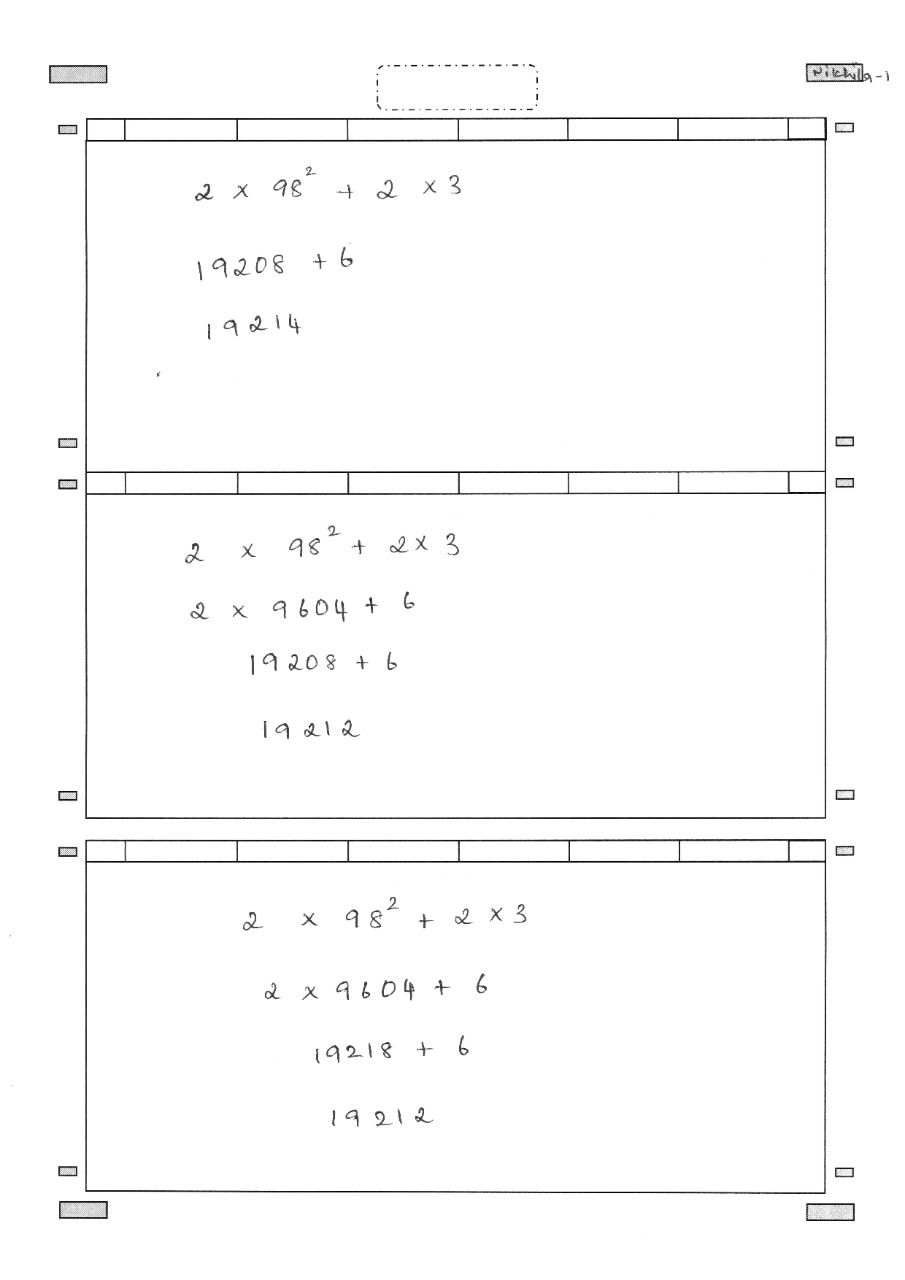 Nikhila-1
2 × 98² + 2 × 3
19208 + 6
19214
2 × 98² + 2 × 3
2 × 9604 + 6
19208 + 6
19212
2 × 98² + 2 × 3
2 × 9604 + 6
19218 + 6
19212